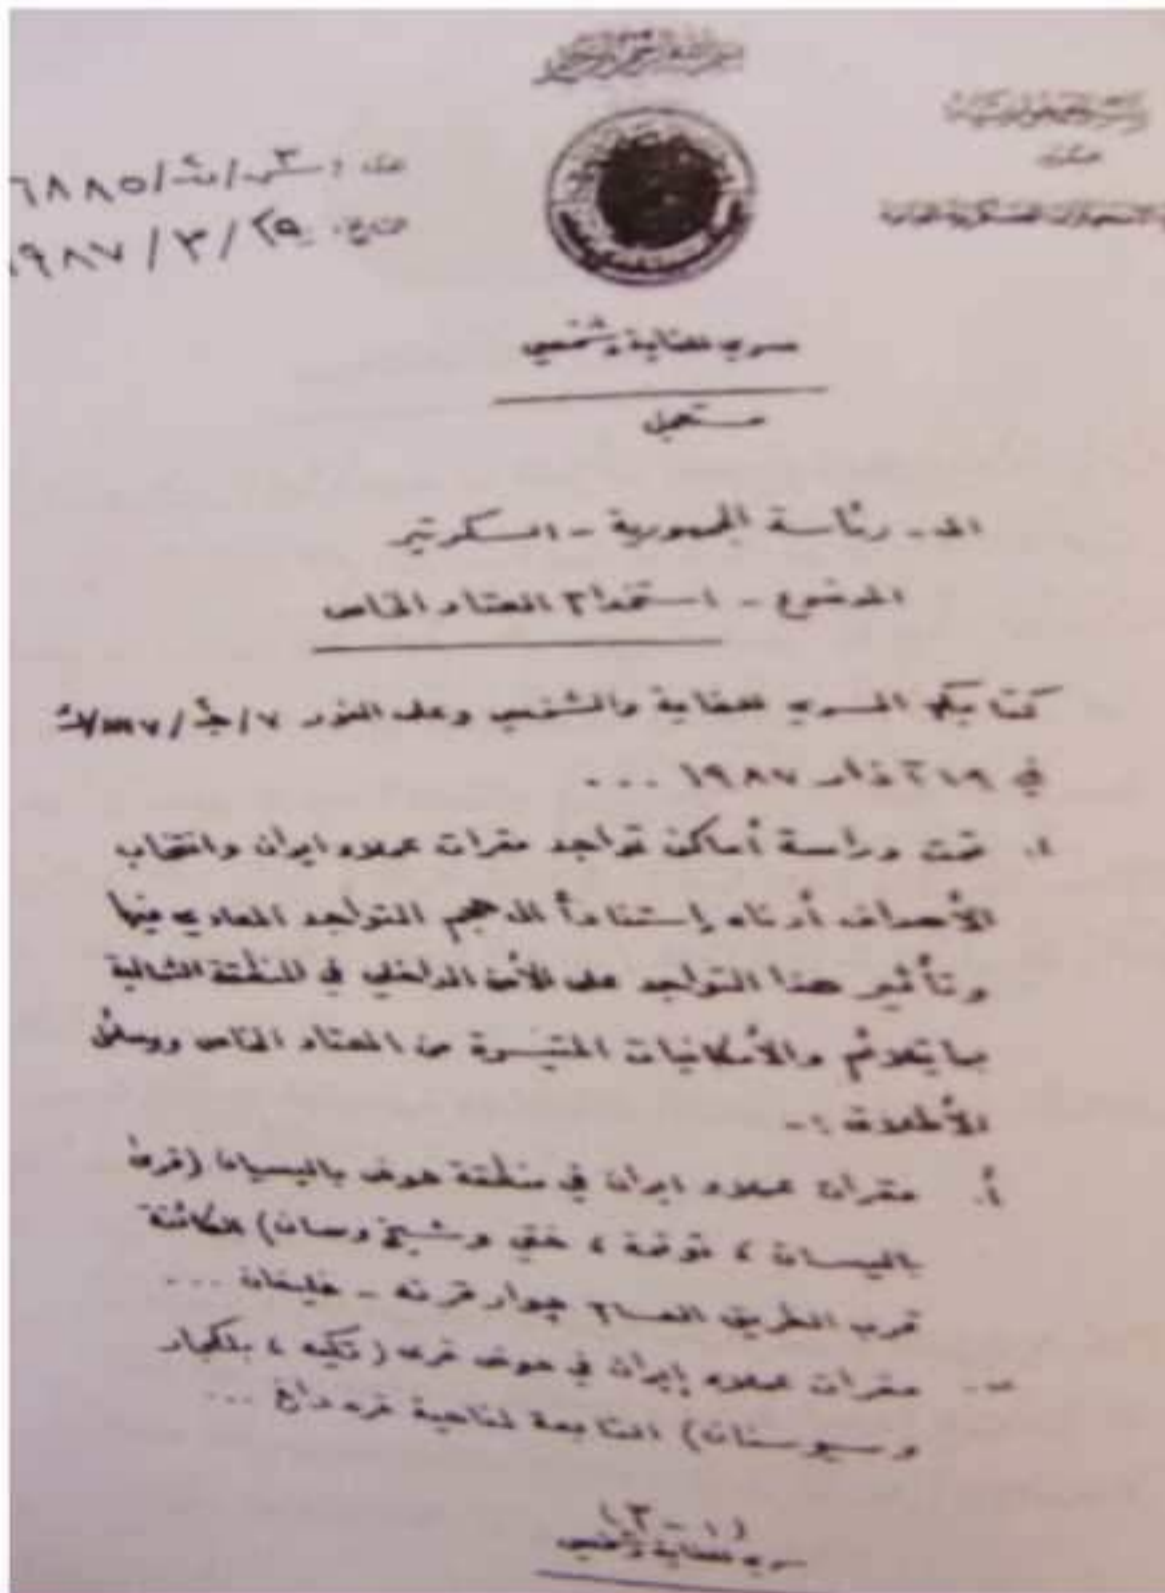 بسم الله الرحمن الرحيم
العدد : ش٣/ث/٦٨٨٥
التاريخ: ٢٥/٣/١٩٨٧
الاستخبارات العسكرية العامة
سري للغاية وشخصي
مستعجل
الى - رئاسة الجمهورية - السكرتير
الموضوع - استخدام العتاد الخاص
كتابكم السري للغاية والشخصي وعلى الفور
في ١٩ آذار ١٩٨٧ ...
١. تمت دراسة أماكن تواجد مقرات عملاء ايران وانتخاب
الأهداف أدناه إستناداً الى حجم التواجد المعادي فيها
وتأثير هذا التواجد على الأمن الداخلي في المنطقة الشمالية
بما يتلائم والأمكانيات المتيسرة من العتاد الخاص ووسائل
الأطلاق :-
أ. مقرات عملاء ايران في منطقة حوض باليسان (قرى
باليسان ، توتمة ، ختي وشيخ وسان) الكائنة
قرب الطريق العام جوار قرنه - خليفان ...
ب. مقرات عملاء إيران في حوض قرى (تكيه ، بلكجار
وسيوسنان) التابعة لناحية قره داغ ...
(١ - ٣)
سري للغاية وشخصي